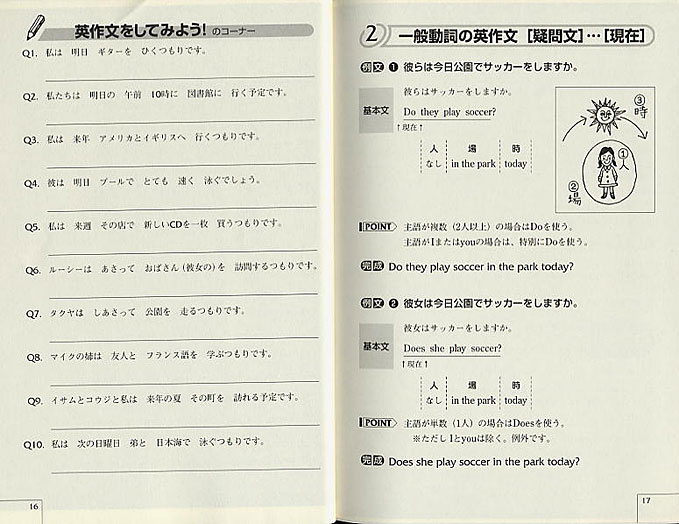 英作文をしてみよう! のコーナー
Q1. 私は 明日 ギターを ひくつもりです。
Q2. 私たちは 明日の 午前 10時に 図書館に 行く予定です。
Q3. 私は 来年 アメリカとイギリスへ 行くつもりです。
Q4. 彼は 明日 プールで とても 速く 泳ぐでしょう。
Q5. 私は 来週 その店で 新しいCDを一枚 買うつもりです。
Q6. ルーシーは あさって おばさん(彼女の)を 訪問するつもりです。
Q7. タクヤは しあさって 公園を 走るつもりです。
Q8. マイクの姉は 友人と フランス語を 学ぶつもりです。
Q9. イサムとコウジと私は 来年の夏 その町を 訪れる予定です。
Q10. 私は 次の日曜日 弟と 日本海で 泳ぐつもりです。
16
2 一般動詞の英作文 [疑問文]…[現在]
例文 ❶ 彼らは今日公園でサッカーをしますか。
彼らはサッカーをしますか。
基本文 Do they play soccer?
↑現在↑
人 場 時
なし in the park today
③時
①人
②場
POINT 主語が複数(2人以上)の場合はDoを使う。
主語がIまたはyouの場合は、特別にDoを使う。
完成 Do they play soccer in the park today?
例文 ❷ 彼女は今日公園でサッカーをしますか。
彼女はサッカーをしますか。
基本文 Does she play soccer?
↑現在↑
人 場 時
なし in the park today
POINT 主語が単数(1人)の場合はDoesを使う。
※ただしIとyouは除く。例外です。
完成 Does she play soccer in the park today?
17